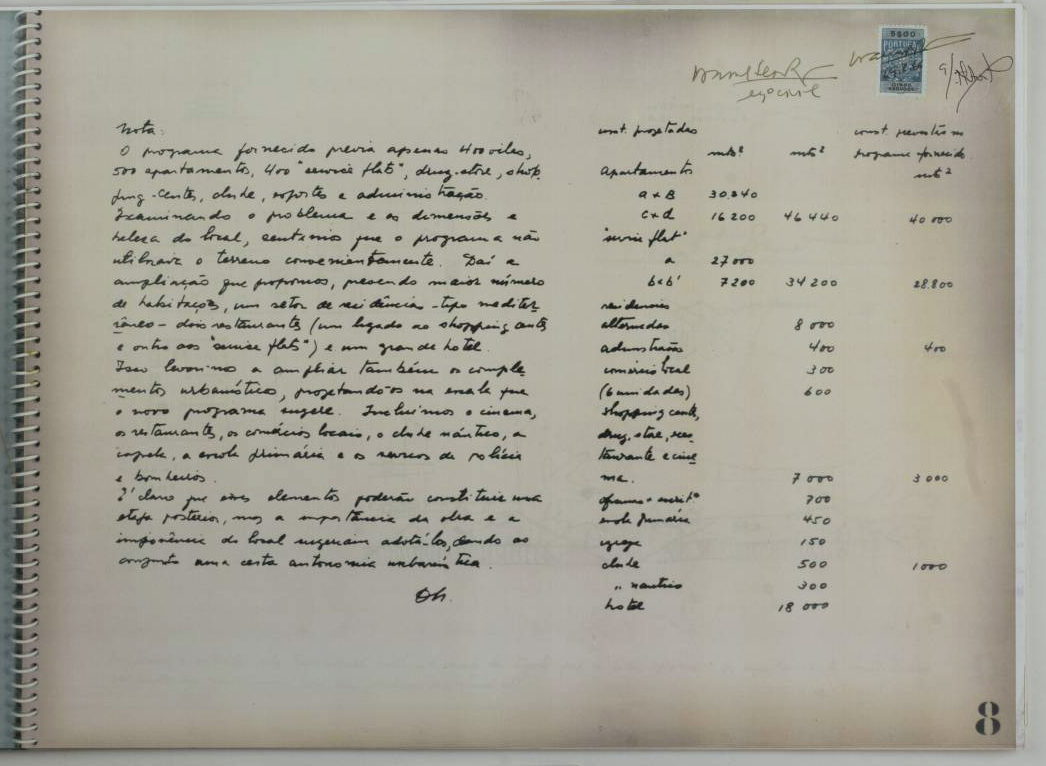 5$00
PORTUGAL
Nota:
O programa fornecido previa apenas 400 vilas,
500 apartamentos, 400 "service flats", drug-store, shop-
ping-center, clube, esportes e administração.
Examinando o problema e as dimensões e
beleza do local, sentimos que o programa não
utilizava o terreno convenientemente. Daí a
ampliação que propomos, prevendo maior número
de habitações, um setor de residência - tipo mediter-
râneo - dois restaurantes (um ligado ao shopping center
e outro aos "service flats") e um grande hotel.
Isso levou-nos a ampliar também os comple-
mentos urbanísticos, projetando-os na escala que
o novo programa sugere. Incluimos o cinema,
os restaurantes, os comércios locais, o clube náutico, a
capela, a escola primária e os serviços de polícia
e bombeiros.
É claro que esses elementos poderão constituir uma
etapa posterior, mas a importância da obra e a
imponência do local sugeriam adotá-los, dando ao
conjunto uma certa autonomia urbanística.
ON.
const. projetadas
const. previstas no
mts² mts² programa fornecido
mts²
apartamentos
a + B 30.240
c + d 16 200 46 440 40 000
"service flat"
a 27 000
b e b' 7 200 34 200 28.800
residencias
8 000
400 400
comércio local 300
(6 unidades) 600
shopping cente,
drug-store, res-
taurante e cine
ma. 7 000 3 000
700
escola primária 450
igreja 150
clube 500 1000
" nautico 300
hotel 18 000
8